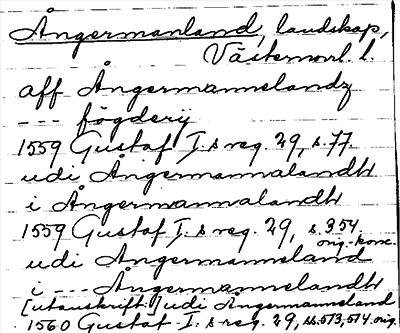 Ångermanland, landskap,
Västernorrl. l.
aff Ångermannelandz
--- fögderij
1559 Gustaf I:s reg. 29, s. 77.
udi Ångermannalandh
i Ångermannalandh
1559 Gustaf I:s reg. 29, s. 354
orig.-konc.
udi Ångermanneland
i --- Ångermannelandh
[utanskrift:] udi Ångermanneland
1560 Gustaf I:s reg. 29, ss. 513, 514 orig.